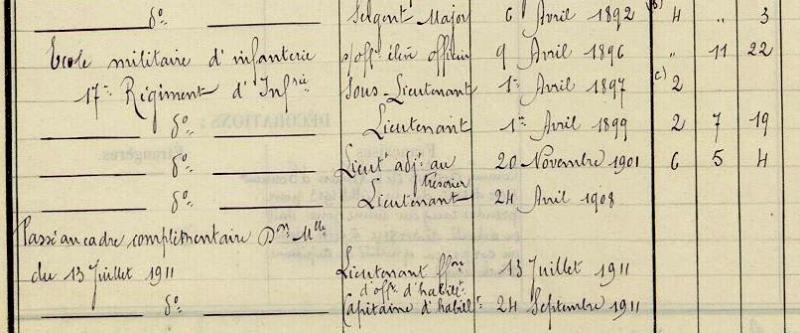 do Sergent Major 6 Avril 1892 4 " 3
Ecole militaire d'infanterie s/off. élève officier 9 Avril 1896 " 11 22
17e Régiment d'Infrie Sous-Lieutenant 1er Avril 1897 c) 2
do Lieutenant 1er Avril 1899 2 7 19
do Lieutt adjt au trésorier 20 Novembre 1901 6 5 4
do Lieutenant 24 Avril 1908
Passé au cadre complémentaire Don Mlle
du 13 Juillet 1911 Lieutenant ffons 13 Juillet 1911
d'off. d'habillt
do Capitaine d'habillt 24 Septembre 1911